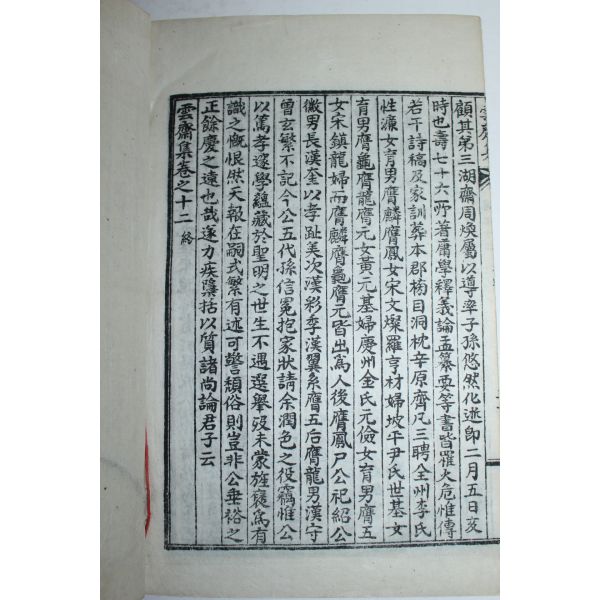 顧其第三湖齋周煥屬以導率子孫悠然化逝卽二月五日亥
時也壽七十六所著庸學釋義論孟纂要等書皆罹火危惟傳
若干詩稿及家訓葬本郡楠目洞枕辛原齊凡三聘全州李氏
性濂女育男膺麟膺鳳女宋文燦羅亨材婦坡平尹氏世基女
育男膺龜膺龍膺元女黃元基婦慶州金氏元儉女育男膺五
女宋鎮龍婦而膺麟膺龜膺元皆出爲人後膺鳳尸公祀紹公
徽男長漢奎以孝趾美次漢彩季漢翼系膺五后膺龍男漢守
曾玄繁不記今公五代孫信冕抱家狀請余潤色之役竊惟公
以篤孝邃學蘊藏於聖明之世生不遇選擧歿未蒙旌褒爲有
識之慨恨然天報在嗣式繁有述可警頹俗則豈非公垂裕之
正餘慶之遠也哉遂力疾檃括以質諸尚論君子云
雲齋集卷之十二 終